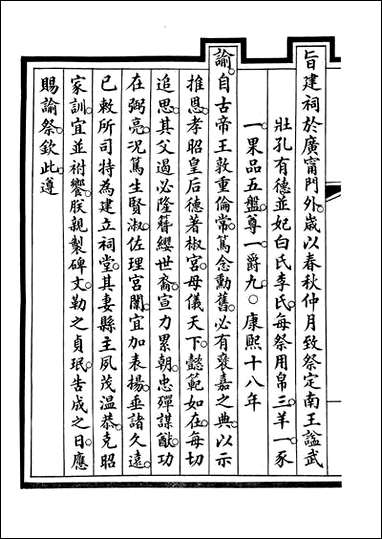 旨建祠於廣甯門外歲以春秋仲月致祭定南王諡武
壯孔有德並妃白氏李氏每祭用帛三羊一豕
一果品五盤尊一爵九○康熙十八年
諭自古帝王敦重倫常篤念勳舊必有襃嘉之典以示
推恩孝昭皇后德著椒宮母儀天下懿範如在每切
追思其父過必隆簪纓世裔宣力累朝忠殫謀猷功
在弼亮況篤生賢淑佐理宮闈宜加表揚垂諸久遠
已敕所司特為建立祠堂其妻縣主夙茂溫恭克昭
家訓宜並祔饗朕親製碑文勒之貞珉告成之日應
賜諭祭欽此遵